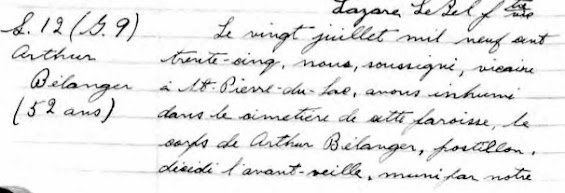 Lazare LeBel ptre
vic
S. 12 (G. 9)
Arthur
Bélanger
(52 ans)
Le vingt juillet mil neuf cent
trente-cinq, nous, soussigné, vicaire
à St-Pierre-du-Lac, avons inhumé
dans le cimetière de cette paroisse, le
corps de Arthur Bélanger, postillon,
décédé l'avant-veille, muni par notre